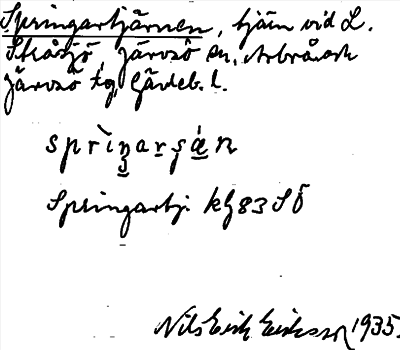 Springartjärnen, tjärn vid L.
Stråsjö, Järvsö sn, Arbrå och
Järvsö tg, Gävleb. l.
Springartj. kg 83 SÖ
Nils Erik Eriksson 1935.